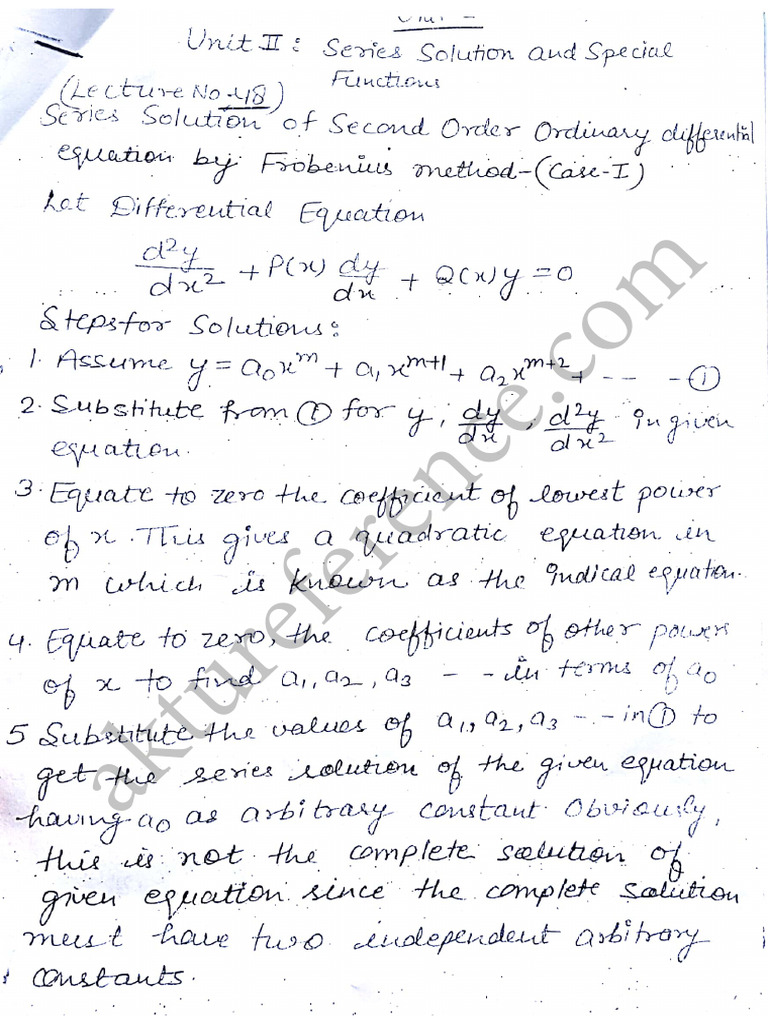 Unit II : Series Solution and Special
Functions
(Lecture No. 48)
Series Solution of Second Order Ordinary differential
equation by Frobenius method-(Case-I)
Let Differential Equation
d²y/dx² + P(x) dy/dx + Q(x)y = 0
Steps for Solutions:
1. Assume y = a₀xᵐ + a₁xᵐ⁺¹ + a₂xᵐ⁺² + -- - ①
2. Substitute from ① for y, dy/dx, d²y/dx² in given
equation.
3. Equate to zero the coefficient of lowest power
of x. This gives a quadratic equation in
m which is known as the indical equation.
4. Equate to zero, the coefficients of other powers
of x to find a₁, a₂, a₃ - - in terms of a₀
5 Substitute the values of a₁, a₂, a₃ - - in ① to
get the series solution of the given equation
having a₀ as arbitrary constant. Obviously,
this is not the complete solution of
given equation since the complete solution
must have two independent arbitrary
constants.
aktureference.com